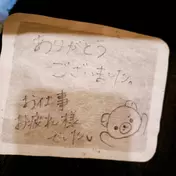 ありがとう
ございました。
お仕事
お疲れ様
でした